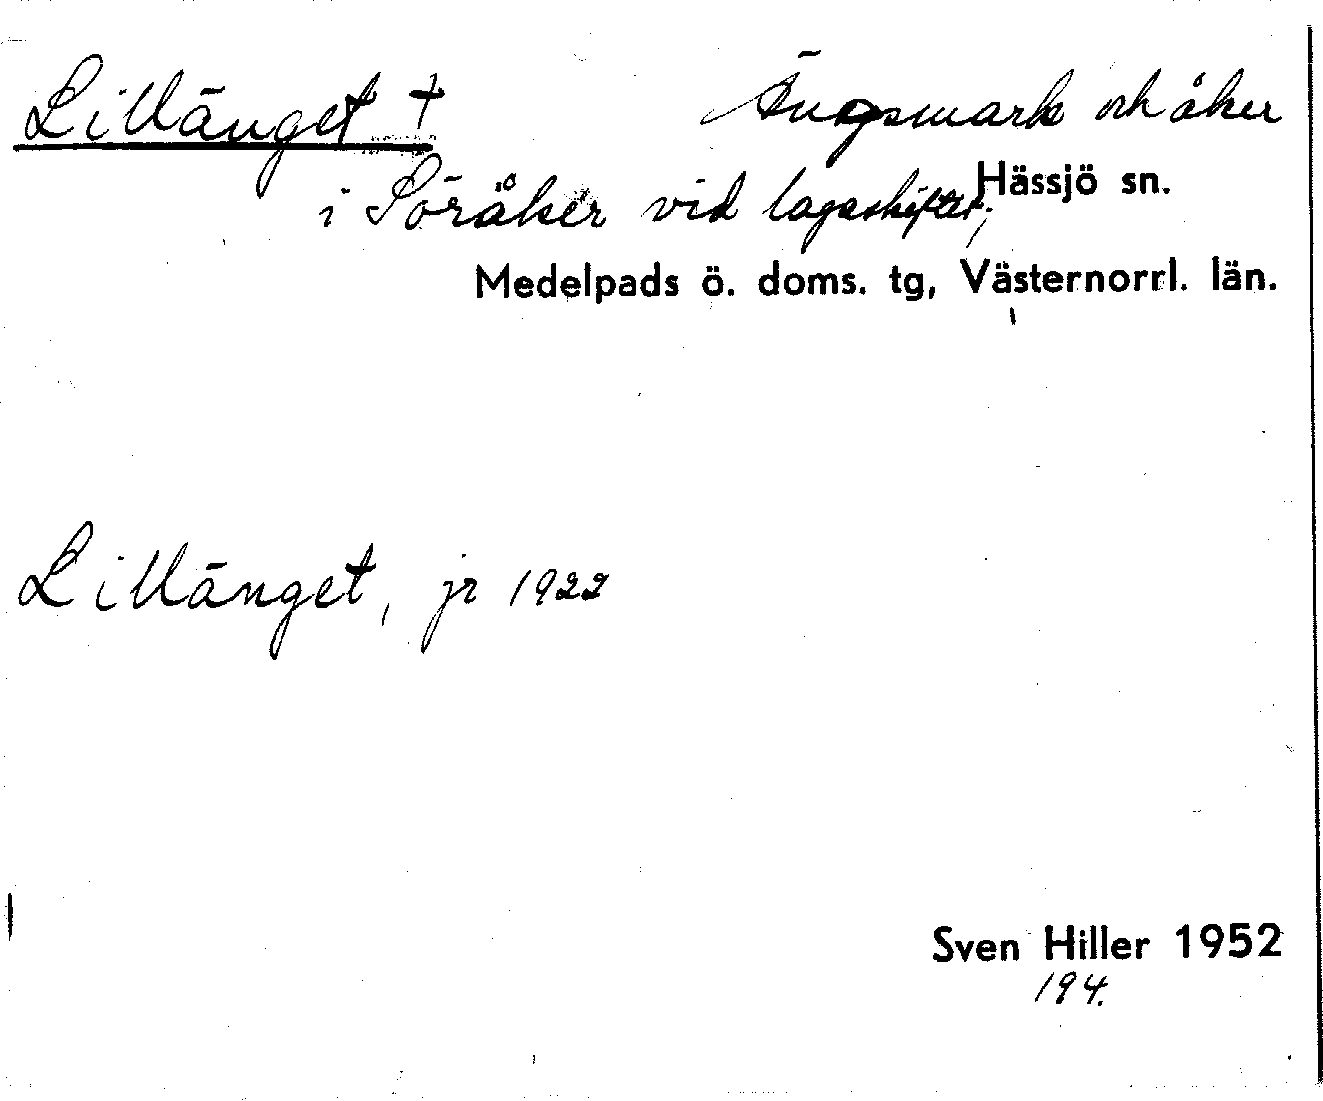 Lillänget †
Ängsmark och åker
i Söråker vid lagaskiftet;
Hässjö sn.
Medelpads ö. doms. tg, Västernorrl. län.
Lillänget, jr 1922
Sven Hiller 1952
194.